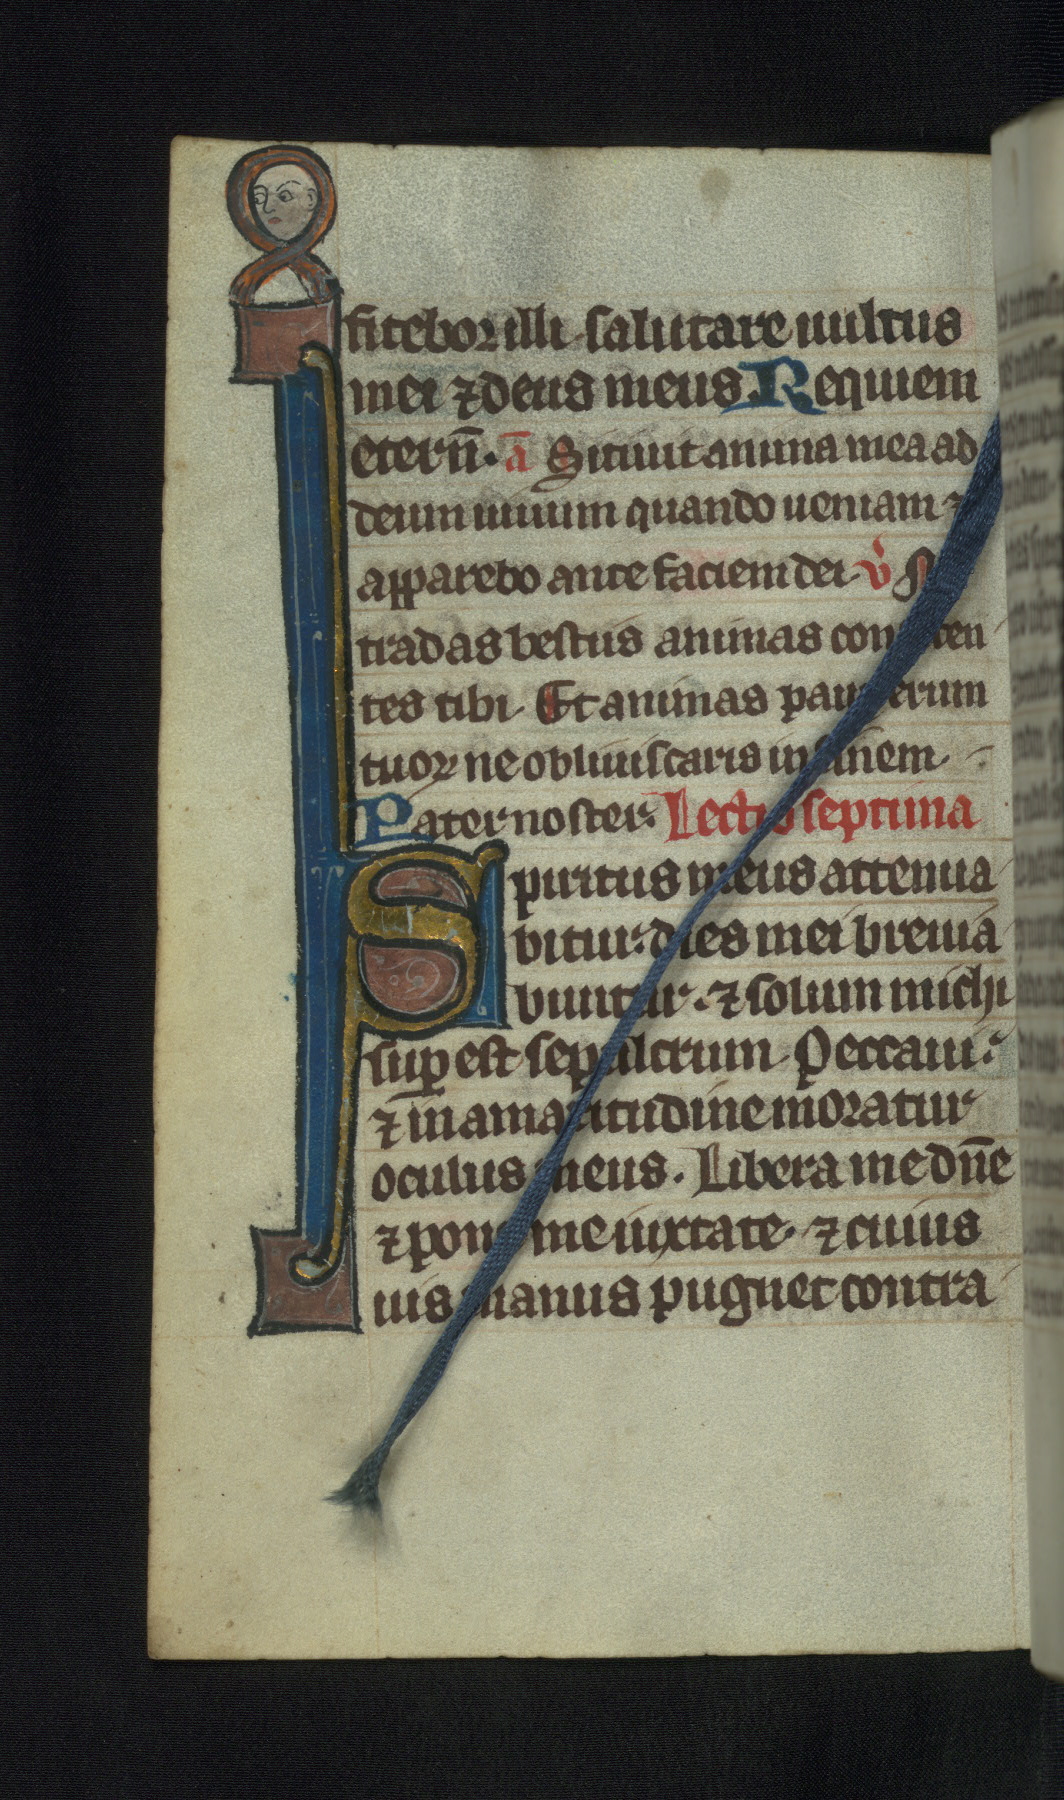 fitebor illi salutare uultus
mei ⁊ deus meus. Requiem
etern̄. ā Sitiuit anima mea ad
deum uiuum quando ueniam ⁊
apparebo ante faciem dei v̄
tradas bestiis animas
tes tibi. Et animas pauperum
tuoꝝ ne obliuiscaris in finem.
Pater noster. Lectio septima
Spiritus meus attenua
bitur. dies mei breuia
buntur. ⁊ solum michi
suꝑ est sepulcrum. Peccaui.
⁊ in amaritudine moratur
oculus meus. Libera me dn̄e
⁊ pone me iuxta te. ⁊ cuius
uis manus pugnet contra